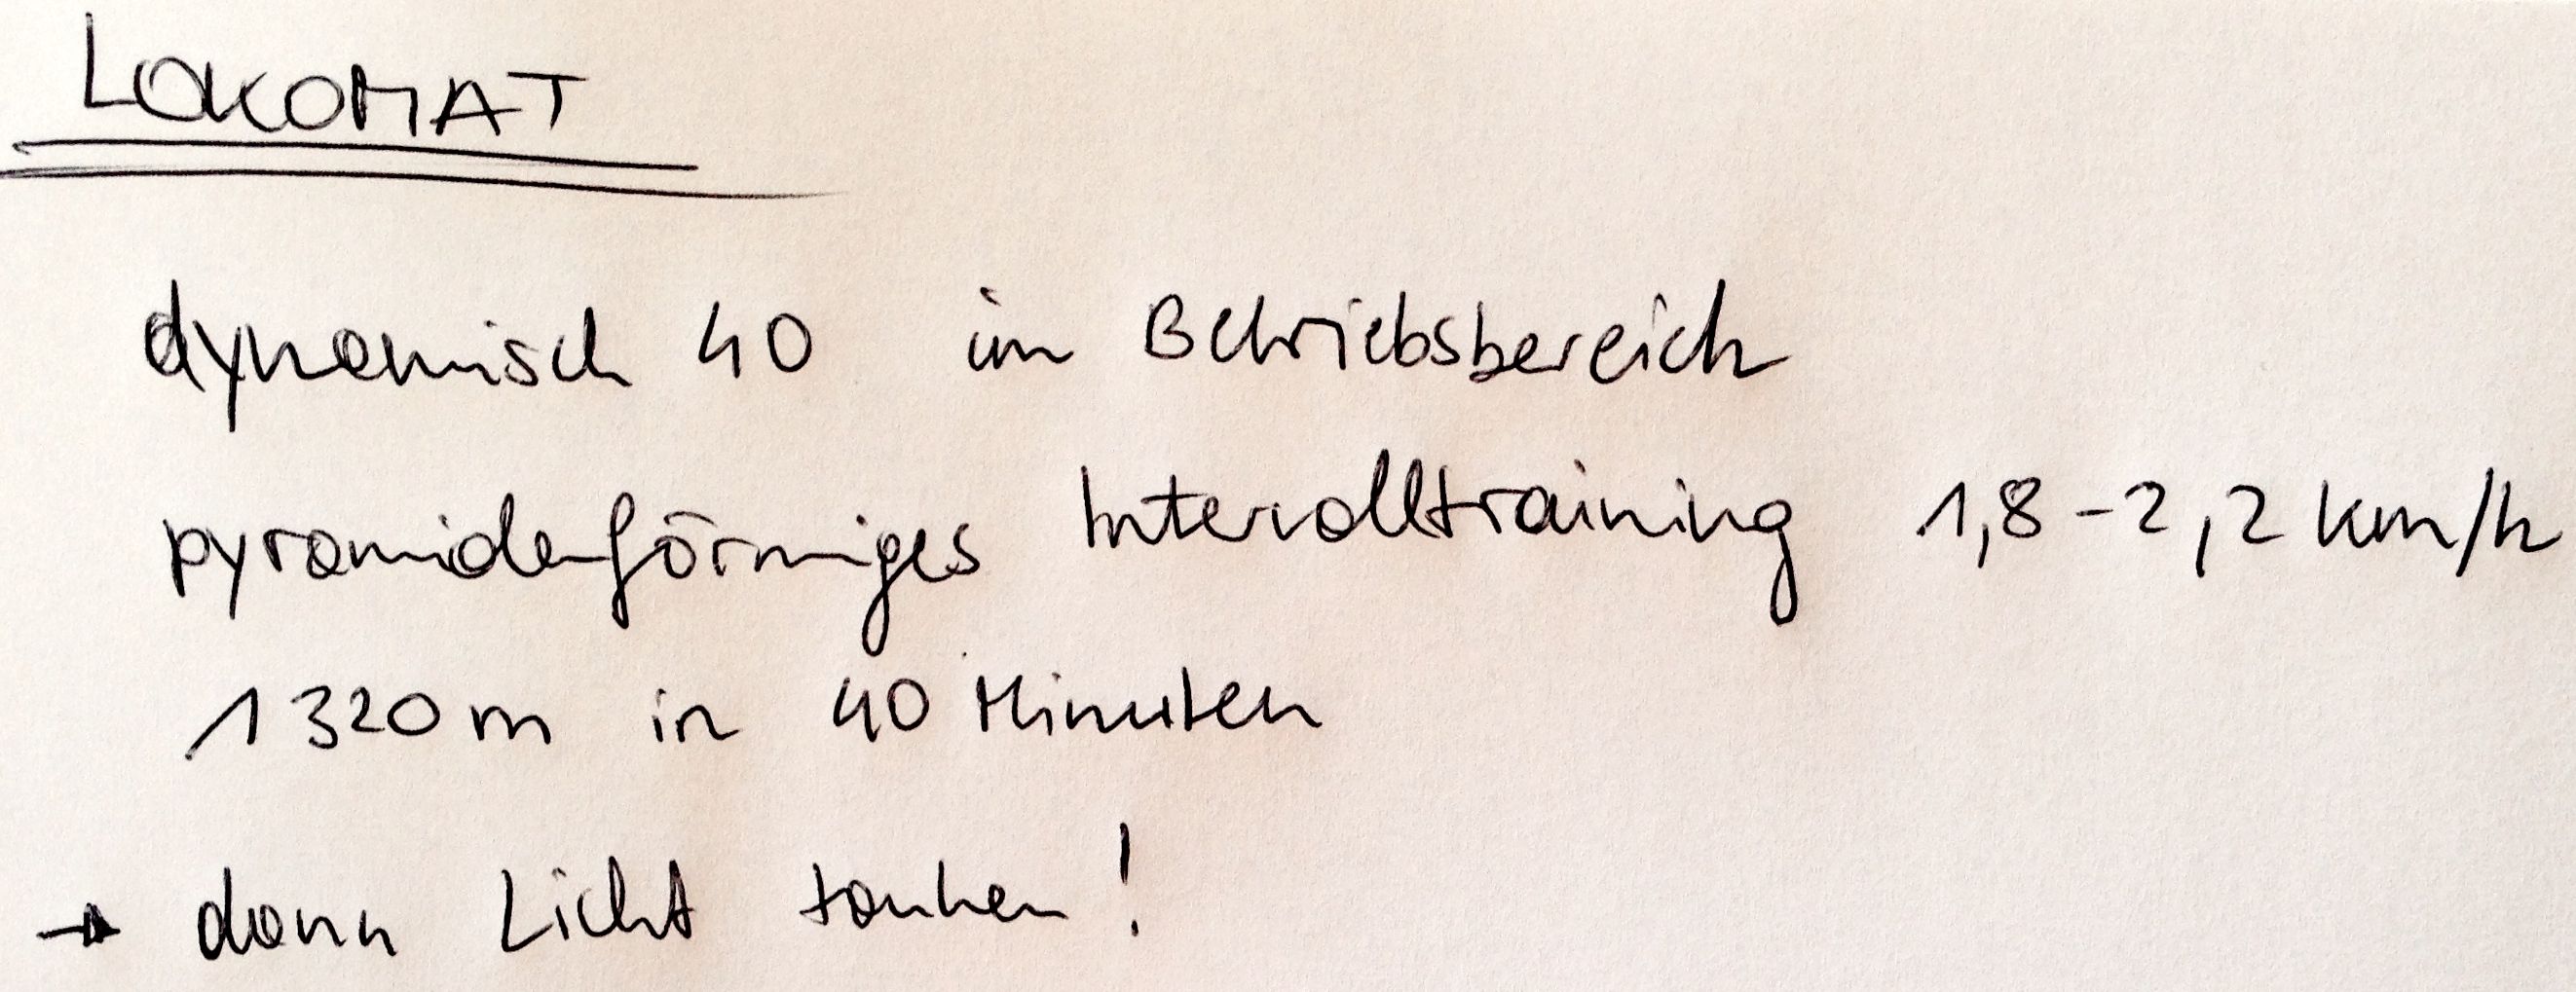 LOKOMAT
dynamisch 40 im Betriebsbereich
pyramidenförmiges Intervalltraining 1,8-2,2 km/h
1320m in 40 Minuten
→ dann Licht tanken!